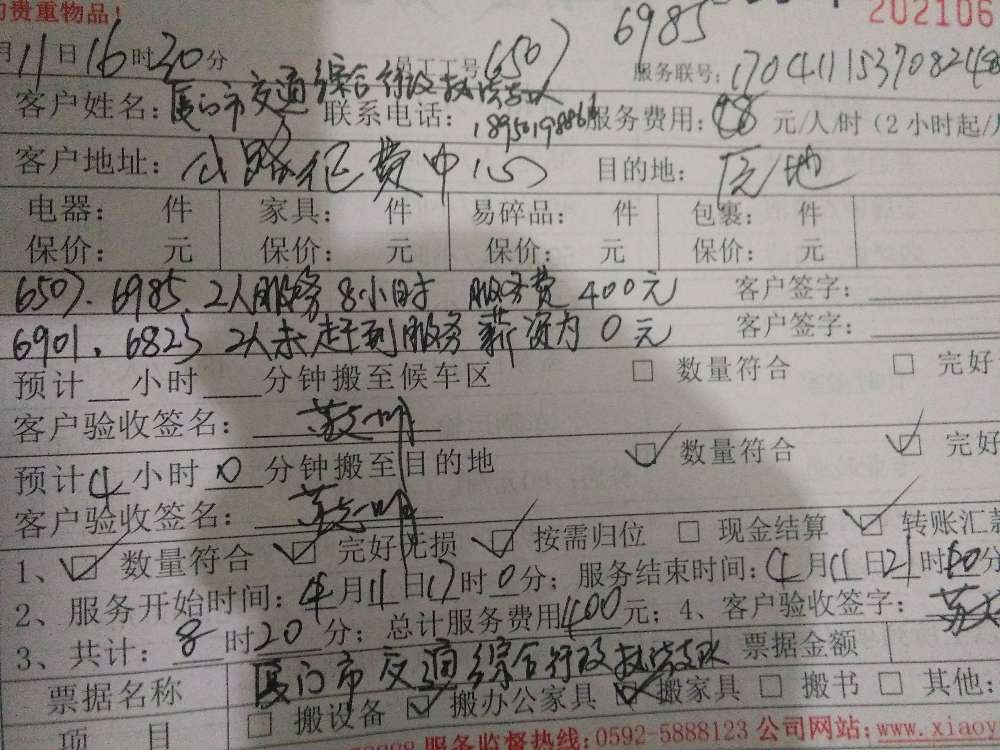 的贵重物品! 6985 202106
月11日16时20分 员工工号:6507 服务联号:
客户姓名:厦门市交通综合行政执法支队 联系电话: 服务费用:48元/人/时(2小时起/
客户地址:公路征费中心 目的地:原地
电器: 件 家具: 件 易碎品: 件 包裹: 件
保价: 元 保价: 元 保价: 元 保价: 元
6507、6985、2人服务8小时 服务费400元 客户签字:
6901、6823 2人未赶到服务 薪资为0元 客户签字:
预计__小时___分钟搬至候车区 □ 数量符合 □ 完好
客户验收签名:
预计4小时0分钟搬至目的地 ☑ 数量符合 ☑ 完好
客户验收签名:
1、☑ 数量符合 ☑ 完好无损 ☑ 按需归位 □ 现金结算 ☑ 转账汇款
2、服务开始时间:4月11日17时0分; 服务结束时间:4月11日21时 分
3、共计:8时20分; 总计服务费用400元; 4、客户验收签字:
票据名称 厦门市交通综合行政执法支队 票据金额
项 目 □ 搬设备 ☑ 搬办公家具 ☑ 搬家具 □ 搬书 □ 其他:
服务监督热线:0592-5888123 公司网站:www.xiaoy